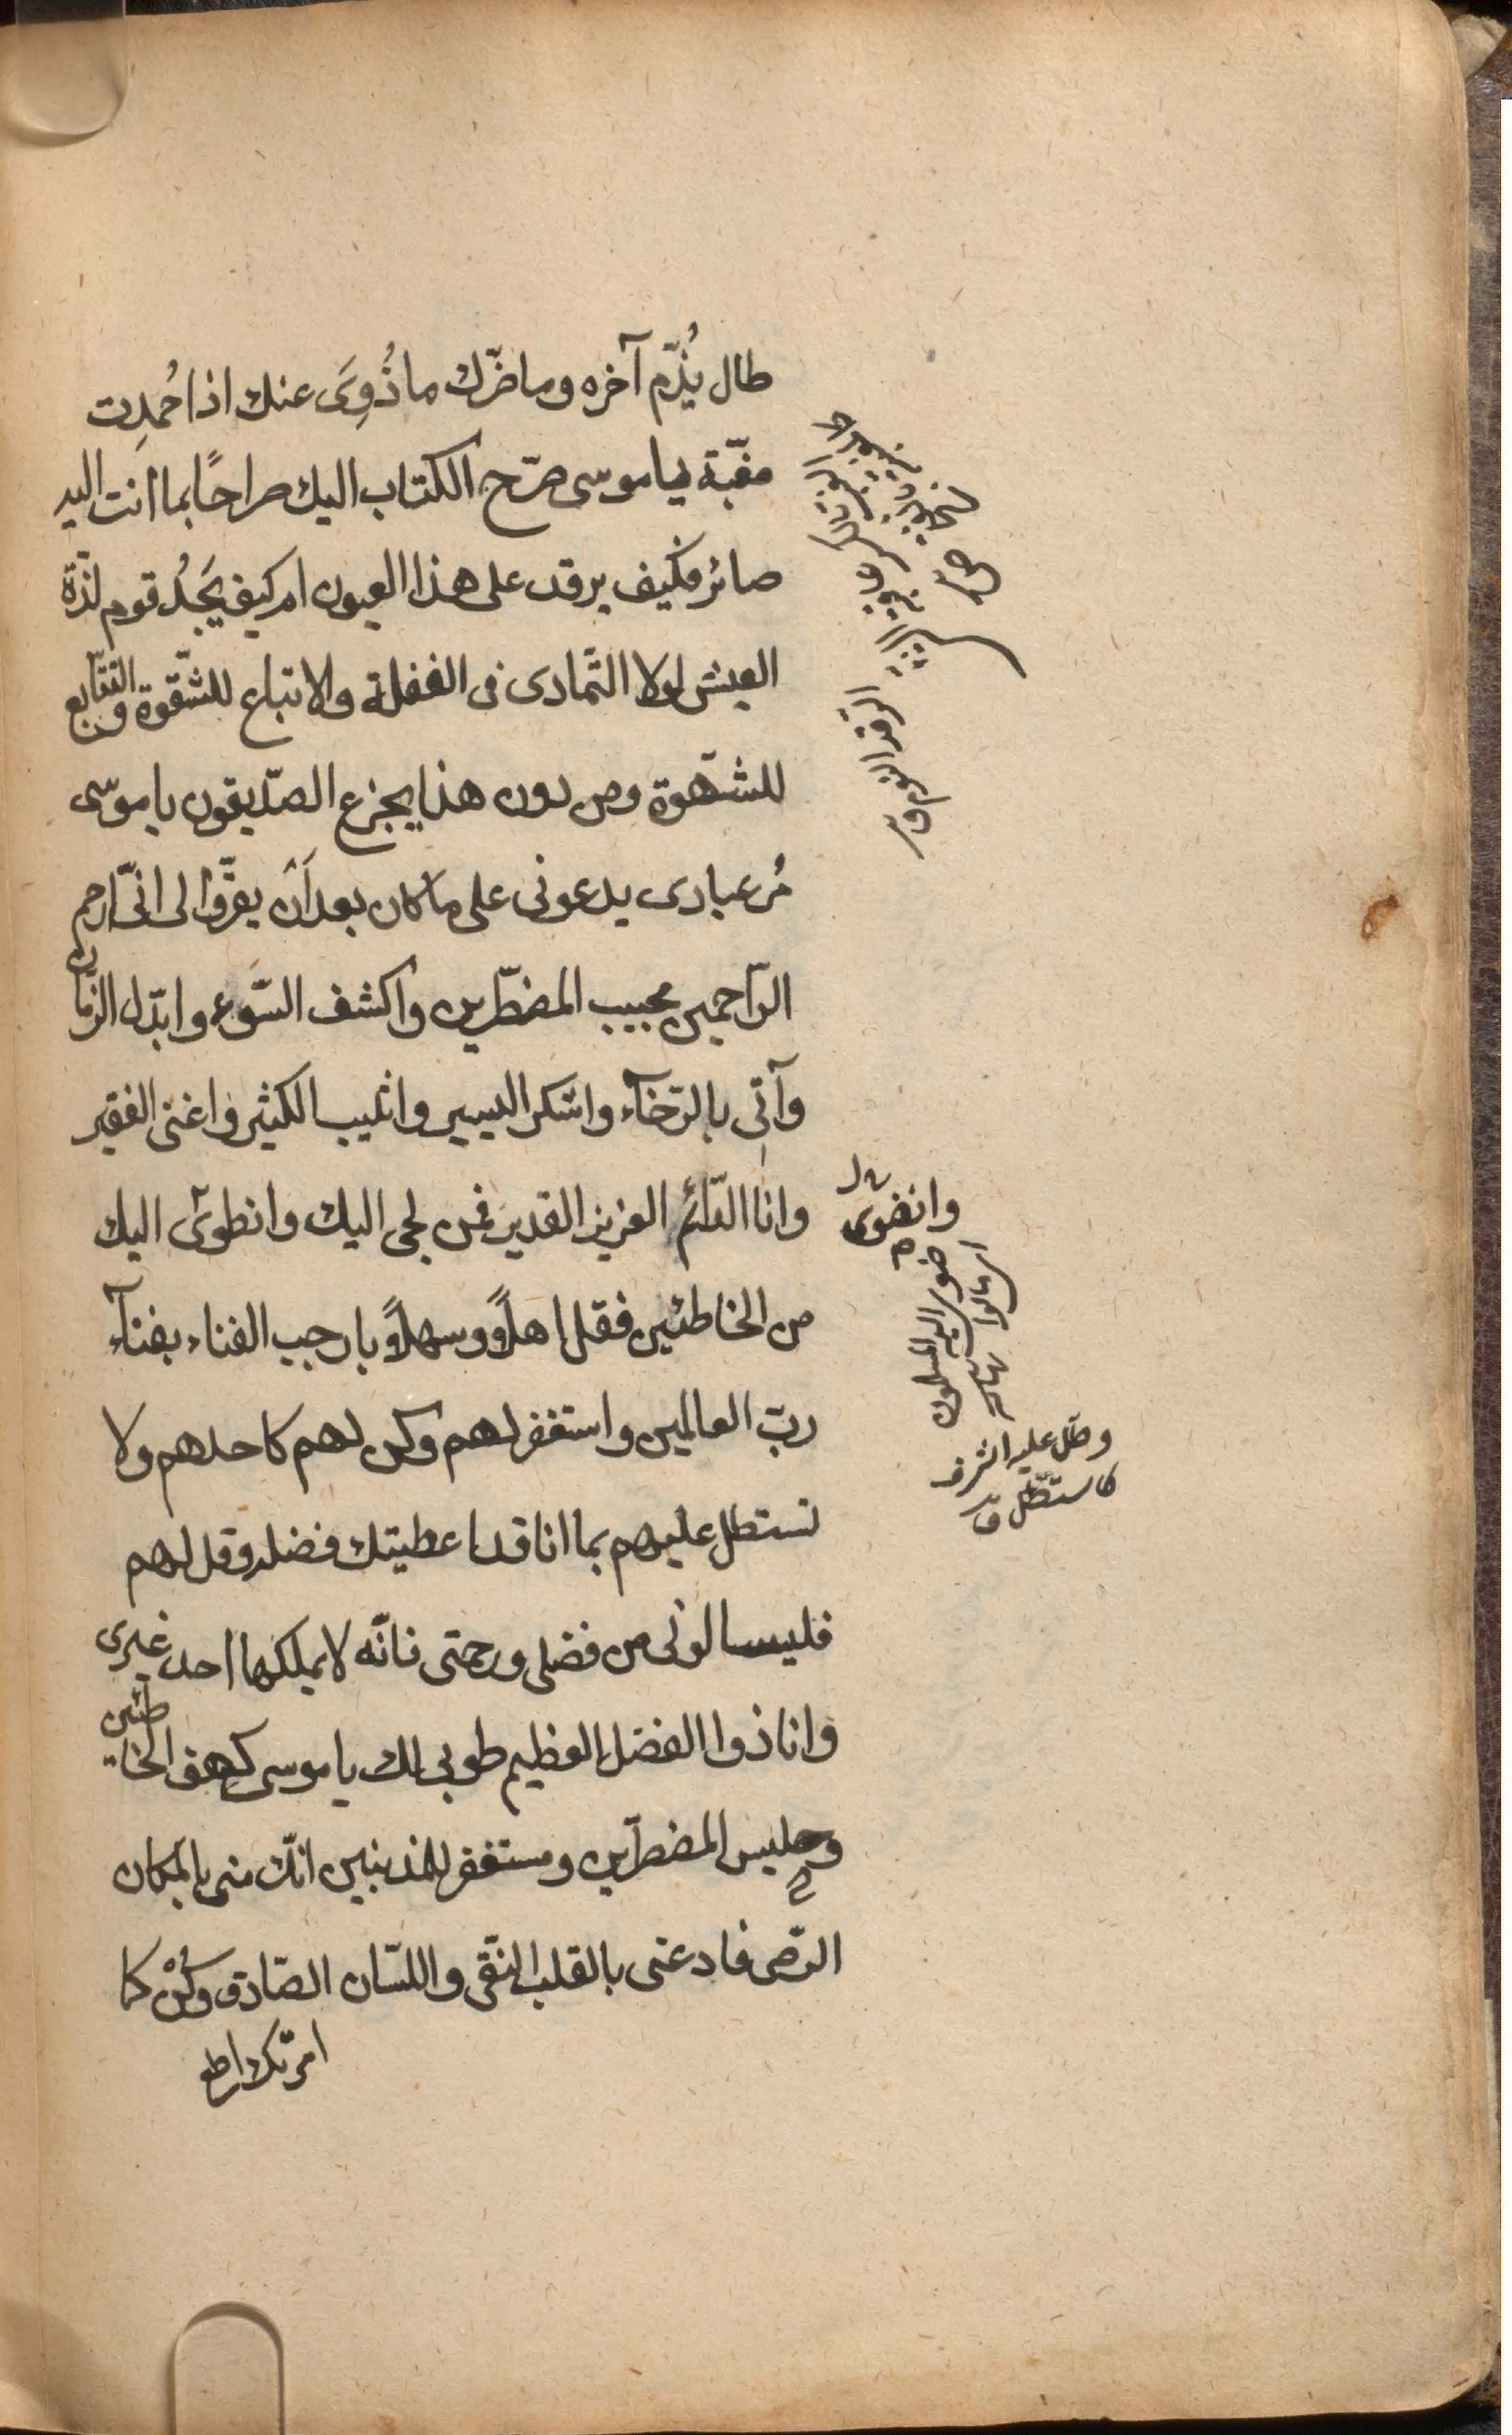 طال يُذَمّ آخره وما ضرّك ما زُوِىَ عنك اذا حُمِدت
مغبّة يا موسى صرّح الكتاب اليك صراحًا بما انت اليه
صائر فكيف يرقد على هذا العيون ام كيف يَجِدُ قوم لذّة
العيش لولا التّمادى فى الغفلة والاتباع للشّقوة والتتابع
للشّهوة ومن دون هذا يجزع الصّدّيقون يا موسى
مُر عبادى يدعونى على ما كان بعد اَن يقرّوا لى انّى ارحم
الرّاحمين مجيب المضطرّين واكشف السّوء وابدّل الزّمان
وآتى بالرّخآء واشكر اليسير واثيب الكثير واغنى الفقير
وانا الدّائم العزيز القدير فمن لجى اليك وانطوى اليك
من الخاطئين فقل اهلاً وسهلاً يا رحب الفناء بفنآء
ربّ العالمين واستغفر لهم وكن لهم كاحدهم ولا
تستطل عليهم بما انا قد اعطيتك فضله وقل لهم
فليسالونى من فضلى ورحمتى فانّه لا يملكها احد غيرى
وانا ذوا الفضل العظيم طوبى لك يا موسى كهف الخاطئين
وجليس المضطرّين ومستغفر للمذنبين انّك منى بالمكان
الرّضى فادعنى بالقلب النّقى واللّسان الصّادق وكُنْ كما
امرتك اطع
الرقد النوم ق
وانضوى
ضوى اليه المسلمون
اى مالوا نهاية
وطّل عليه اشرف
كاستطلّ ق